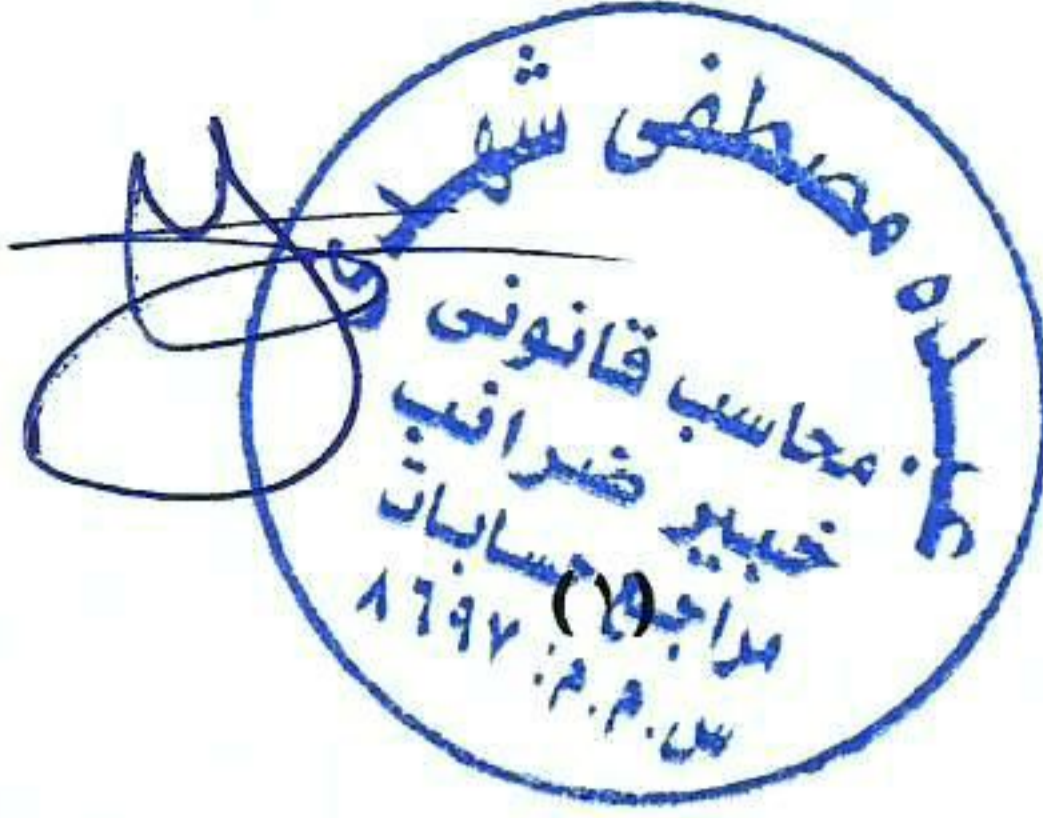 عبده مصطفى شهدى
محاسب قانونى
خبير ضرائب
مراجع حسابات
س.م.م: ٨٦٩٧